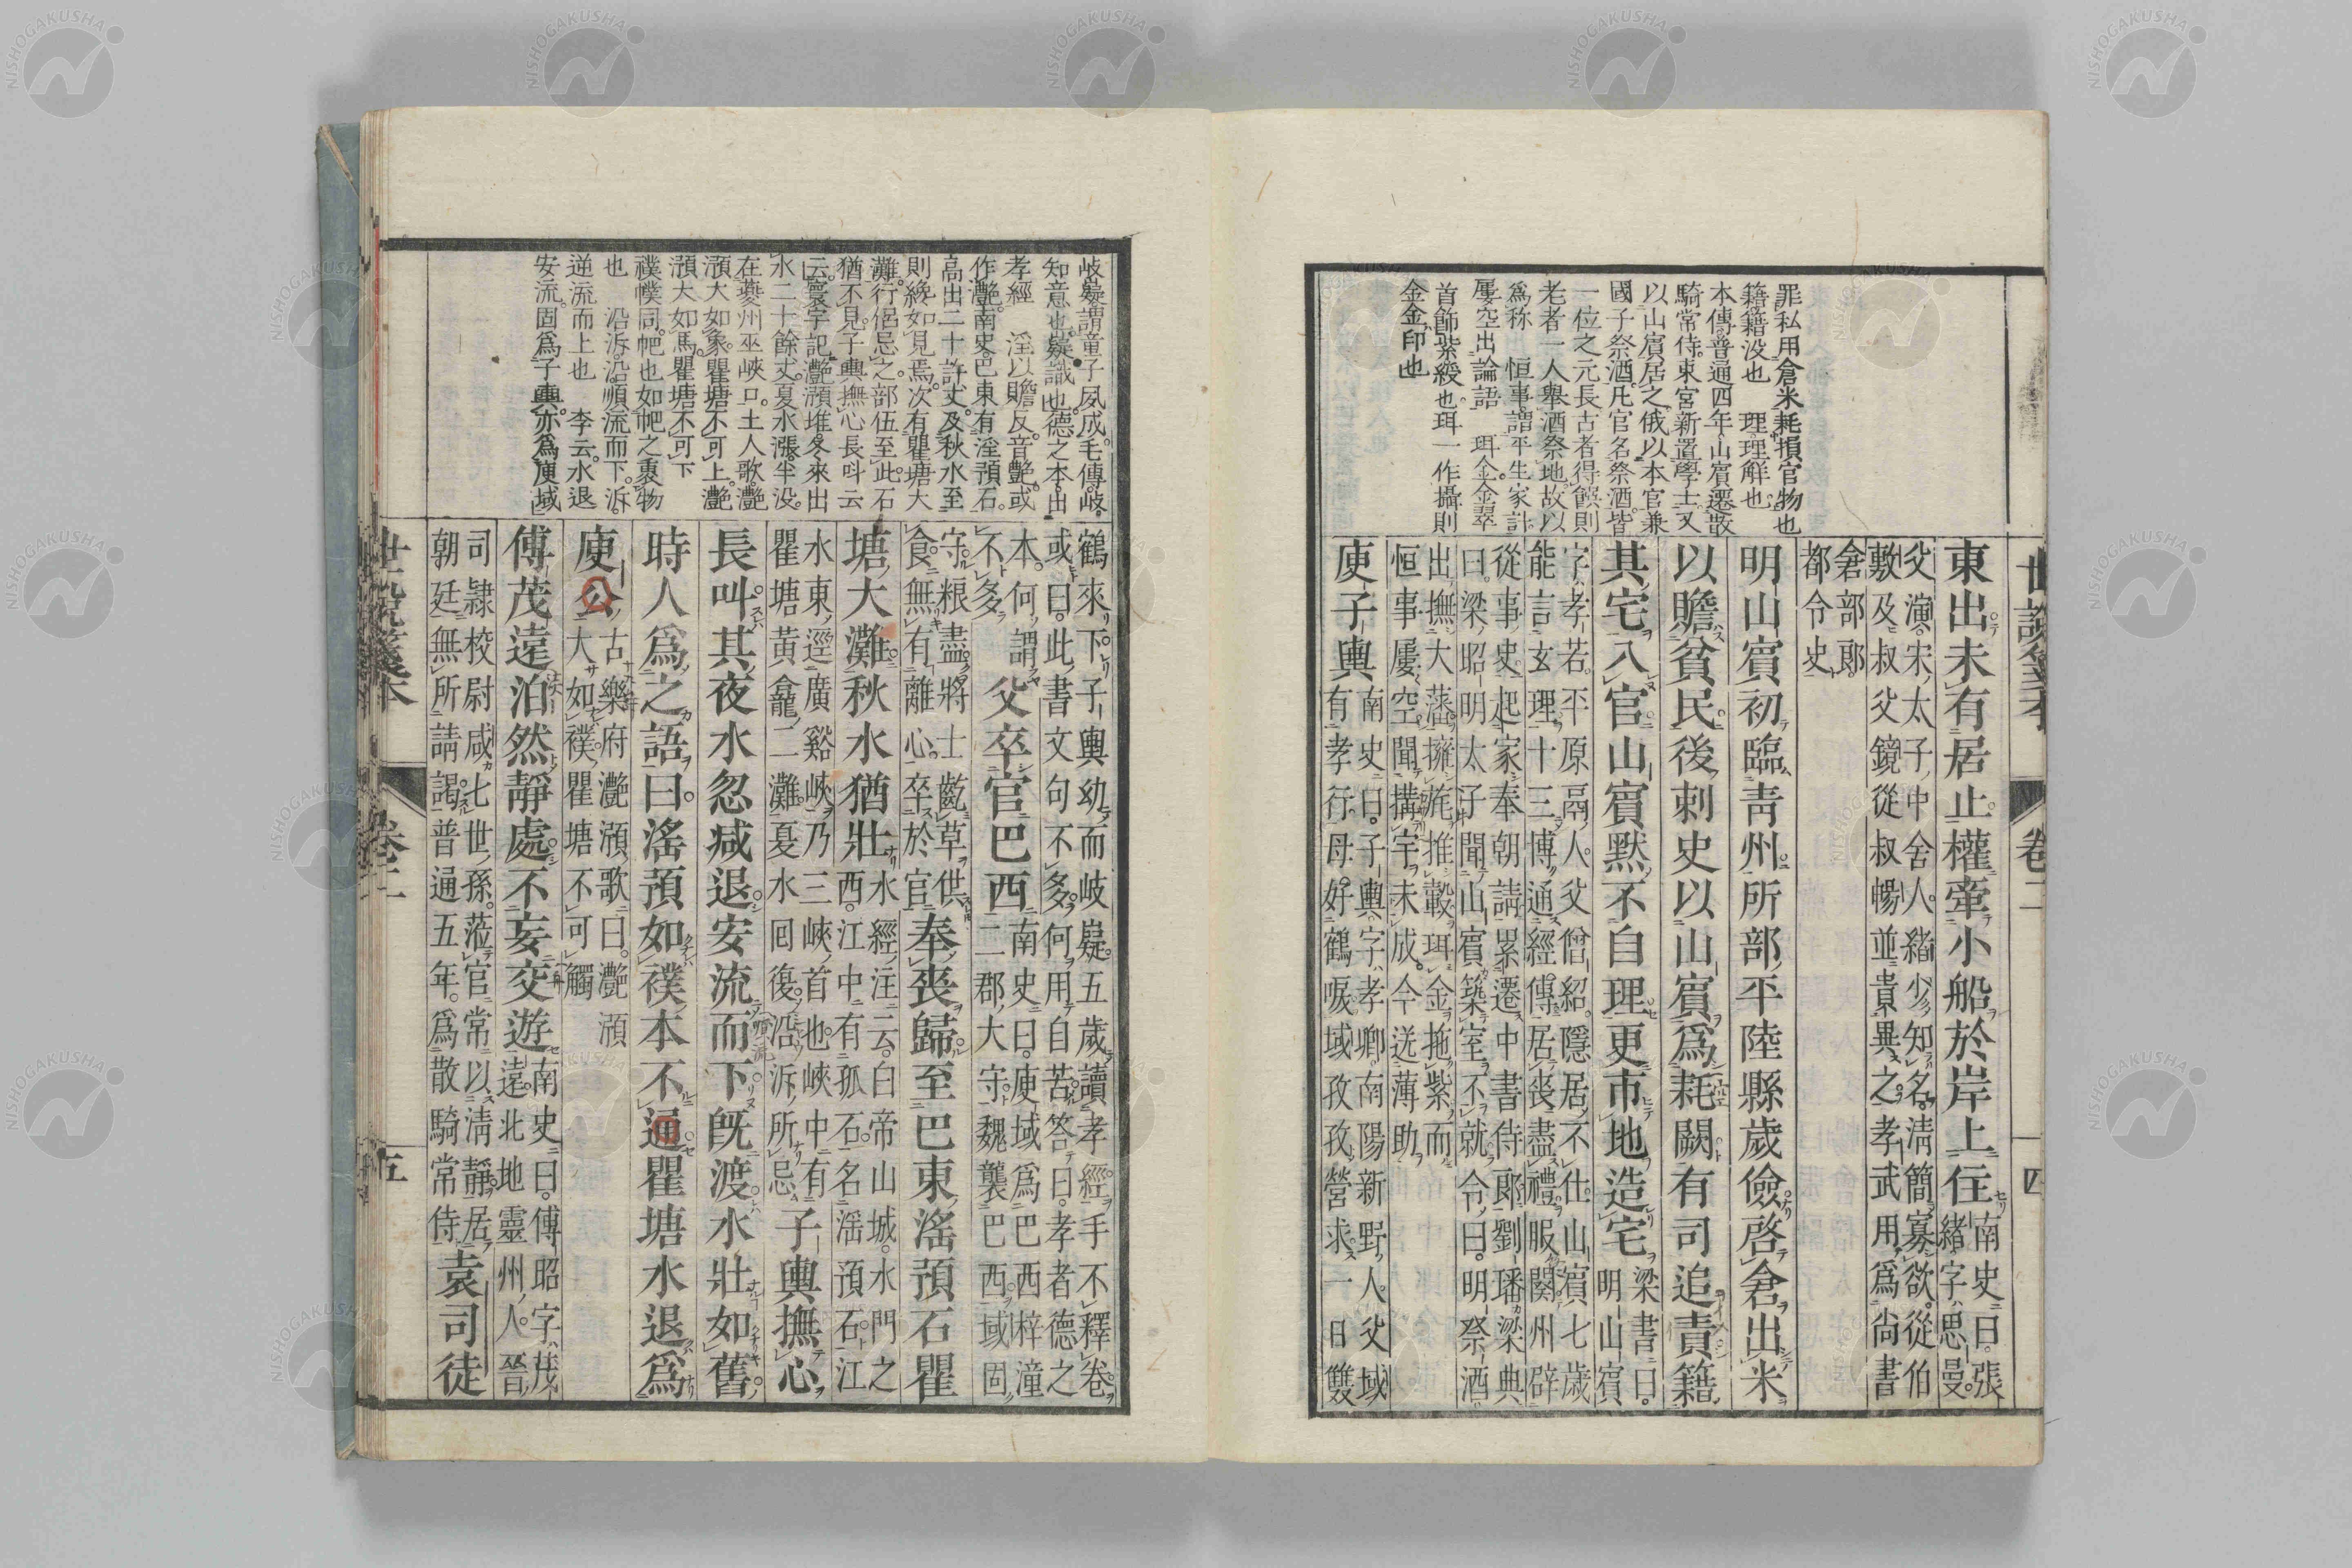 世說箋本
卷二
四
罪私用倉米耗損官物也
籍籍没也　理理解也
本傳普通四年山賓遷散
騎常侍東宮新置學士又
以山賓居之俄以本官兼
國子祭酒凡官名祭酒皆
一位之元長古者得饌則
老者一人舉酒祭地故以
爲称　恒事謂平生家計
屢空出論語　珥金金翠
首飾紫綬也珥一作攝則
金金印也
東出未有居止權牽小船於岸上住
南史曰張
緒字思曼
父演宋太子中舍人緒少知名清簡寡欲從伯
敷及叔父鏡從叔暢並貴異之孝武用爲尚書
倉部郎
都令史
明山賓初臨靑州所部平陸縣歲儉啓倉出米
以贍貧民後刺史以山賓爲耗闕有司追責籍
其宅入官山賓默不自理更市地造宅
梁書曰
明山賓
字孝若平原鬲人父僧紹隱居不仕山賓七歲
能言玄理十三博通經傳居喪盡禮服闋州辟
從事史起家奉朝請累遷中書侍郎劉璠梁典
曰梁昭明太子聞山賓築室不就令曰明祭酒
出撫大藩擁旄推轂珥金拖紫而
恒事屢空聞搆宇未成今送薄助
庾子輿
南史曰子輿字孝卿南陽新野人父域
有孝行母好鶴唳域孜孜營求一日雙
岐嶷謂童子夙成毛傳岐
知意也嶷識也德之本出
孝經　淫以贍反音艷或
作灔南史巴東有淫預石
高出二十許丈及秋水至
則纔如見焉次有瞿塘大
灘行侶忌之部伍至此石
猶不見子輿撫心長呌云
云寰宇記灔澦堆冬來出
水二十餘丈夏水漲半没
在夔州巫峽口土人歌灔
澦大如象瞿塘不可上灔
澦大如馬瞿塘不可下
襆幞同帊也如帊之裹物
也　沿泝沿順流而下泝
逆流而上也　李云水退
安流固爲子輿亦爲庾域
鶴來下子輿幼而岐嶷五歲讀孝經手不釋卷
或曰此書文句不多何用自苦答曰孝者德之
本何謂
不多
父卒官巴西
南史曰庾域爲巴西梓潼
二郡大守魏襲巴西域固
守粮盡將士齕草供
食無有離心卒於官
奉喪歸至巴東淫預石瞿
塘大灘秋水猶壯
水經注云白帝山城水門之
西江中有孤石名淫預石江
水東逕廣谿峽乃三峽首也峽中有
瞿塘黃龕二灘夏水囘復沿泝所忌
子輿撫心
長叫其夜水忽減退安流而下旣渡水壯如舊
時人爲之語曰淫預如襆本不通瞿塘水退爲
庾公
古樂府灔澦歌曰灔澦
大如襆瞿塘不可觸
傅茂遠泊然靜處不妄交遊
南史曰傅昭字茂
遠北地靈州人晉
司隷校尉咸七世孫蒞官常以淸靜居
朝廷無所請謁普通五年爲散騎常侍
袁司徒
世說箋本
卷二
五
NISHOGAKUSHA